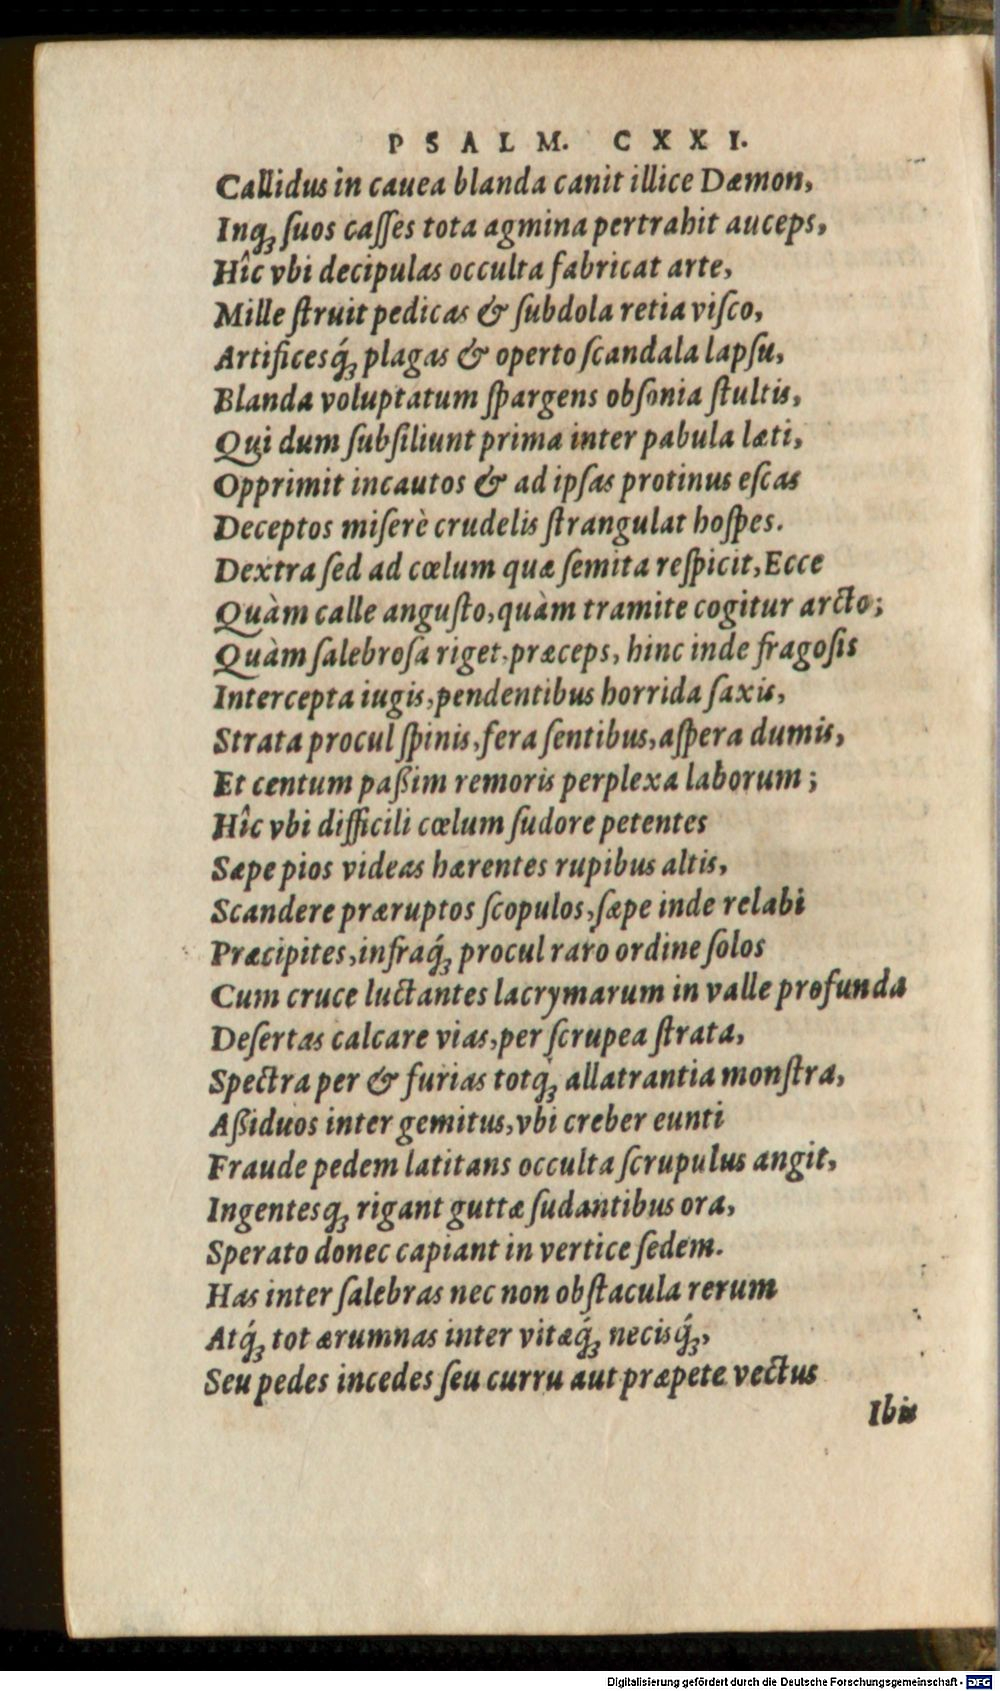 PSALM. CXXI.
Callidus in cauea blanda canit illice Dæmon,
Inq́; ſuos caſſes tota agmina pertrahit auceps,
Hîc vbi decipulas occulta fabricat arte,
Mille ſtruit pedicas & ſubdola retia viſco,
Artificesq́; plagas & operto ſcandala lapſu,
Blanda voluptatum ſpargens obſonia ſtultis,
Qui dum ſubſiliunt prima inter pabula læti,
Opprimit incautos & ad ipſas protinus eſcas
Deceptos miſerè crudelis ſtrangulat hoſpes.
Dextra ſed ad cœlum quæ ſemita reſpicit, Ecce
Quàm calle anguſto, quàm tramite cogitur arcto;
Quàm ſalebroſa riget, præceps, hinc inde fragoſis
Intercepta iugis, pendentibus horrida ſaxis,
Strata procul ſpinis, fera ſentibus, aſpera dumis,
Et centum paßim remoris perplexa laborum;
Hîc vbi difficili cœlum ſudore petentes
Sæpe pios videas hærentes rupibus altis,
Scandere præruptos ſcopulos, ſæpe inde relabi
Præcipites, infraq́; procul raro ordine ſolos
Cum cruce luctantes lacrymarum in valle profunda
Deſertas calcare vias, per ſcrupea ſtrata,
Spectra per & furias totq́; allatrantia monſtra,
Aßiduos inter gemitus, vbi creber eunti
Fraude pedem latitans occulta ſcrupulus angit,
Ingentesq; rigant guttæ ſudantibus ora,
Sperato donec capiant in vertice ſedem.
Has inter ſalebras nec non obſtacula rerum
Atq́; tot ærumnas inter vitæq́; necisq́;,
Seu pedes incedes ſeu curru aut præpete vectus
Ibis
Digitalisierung gefördert durch die Deutsche Forschungsgemeinschaft - DFG